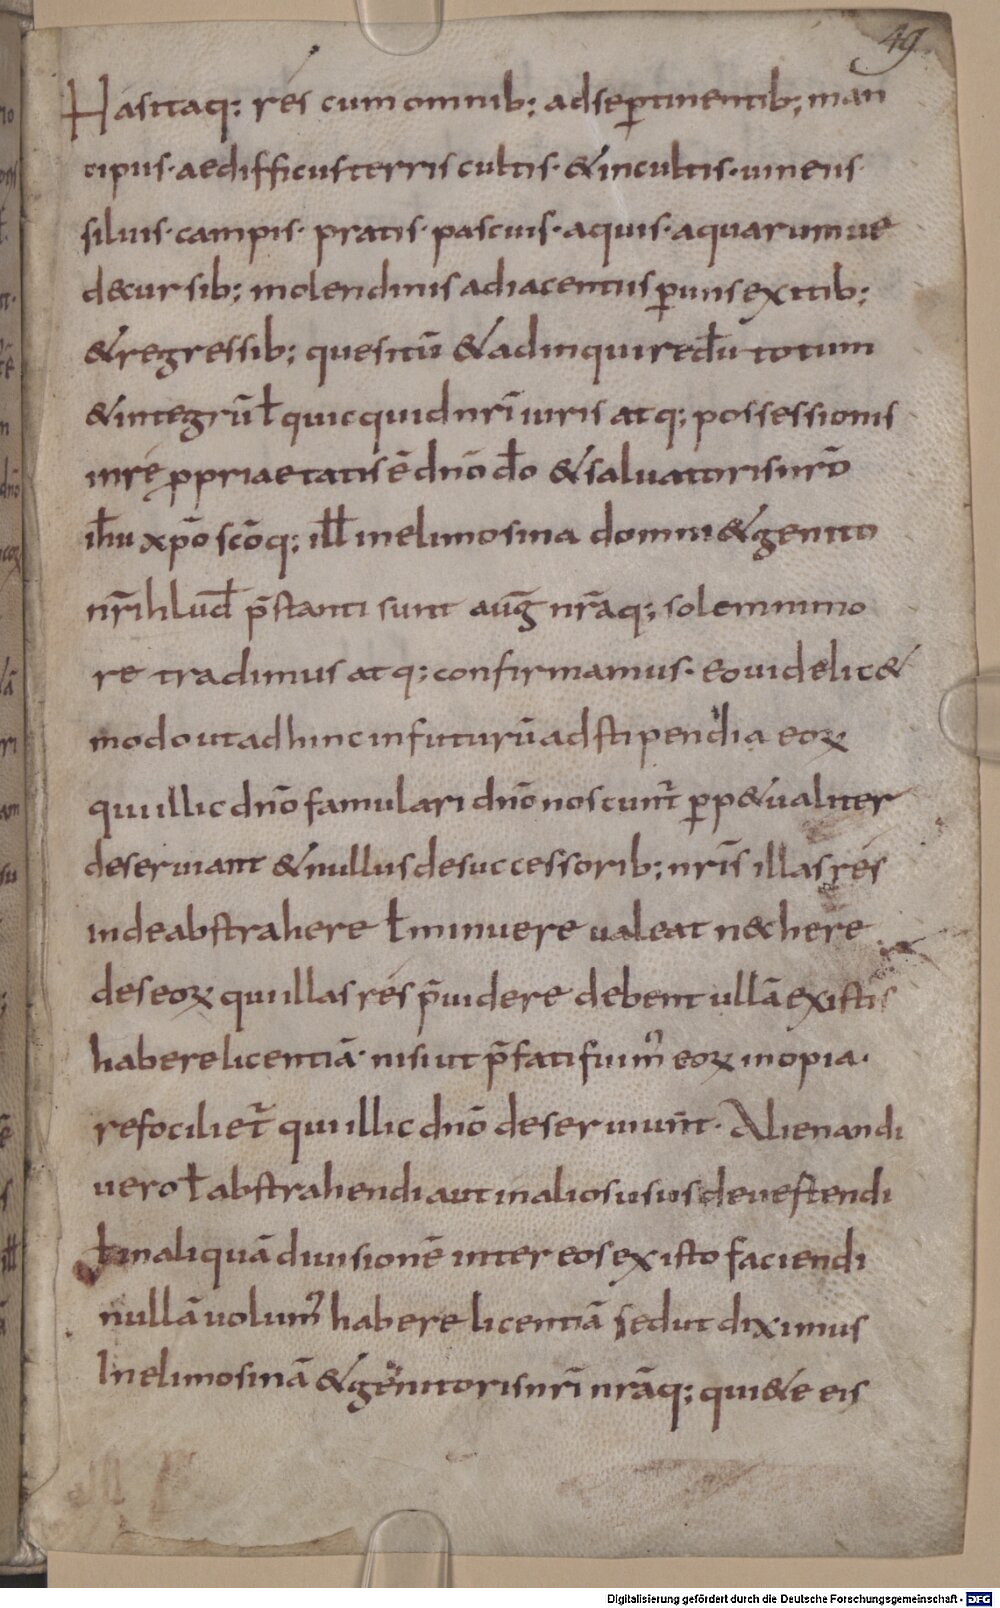 49
Hasitaq; res cum omnib; adseꝑtinentib; man
cipiis· aedifficiis terris cultis· &incultis· uineis·
siluis· campis· pratis· pascuis· aquis· aquarumue
decursib; molendinis adiacentiis ꝑuiis exitib;
&regressib; quesitū &adinquired̄u totum
&integrū ł quicquid nr̄i iuris atq; possessionis
inre ꝓpriaetatis ē dnō d̄o &saluatoris nrō
ih̄u xp̄o sc̄oq; ill̄ inelimosina domni &genito
nr̄i hlud̄ p̄stantissimi aug̅ nr̄aq; solemni mo
re tradimus atq; confirmamus· eo uidelic&
modo ut adhinc infuturū adstipendia eoꝝ
qui illic dnō famulari dnō noscunt̄ ꝑp&ualiter
deseruiant &nullus desuccessorib; nr̄is illas res
inde abstrahere ł minuere ualeat nechere
des eoꝝ qui illas res p̄uidere debent ullā ex istis
habere licentiā· nisi ut p̄fati sumꝰ eoꝝ inopia·
refociliet̄ qui illic dnō deseruiunt̄· Alienandi
uero ł abstrahendi aut in alios usus deuestendi
ł inaliquā diuisionē inter eos ex isto faciendi
nullā uolumꝰ habere licentiā sed ut diximus
Inelimosinā &genitoris nr̄i nr̄aq; qui&e eis
Digitalisierung gefördert durch die Deutsche Forschungsgemeinschaft - DFG